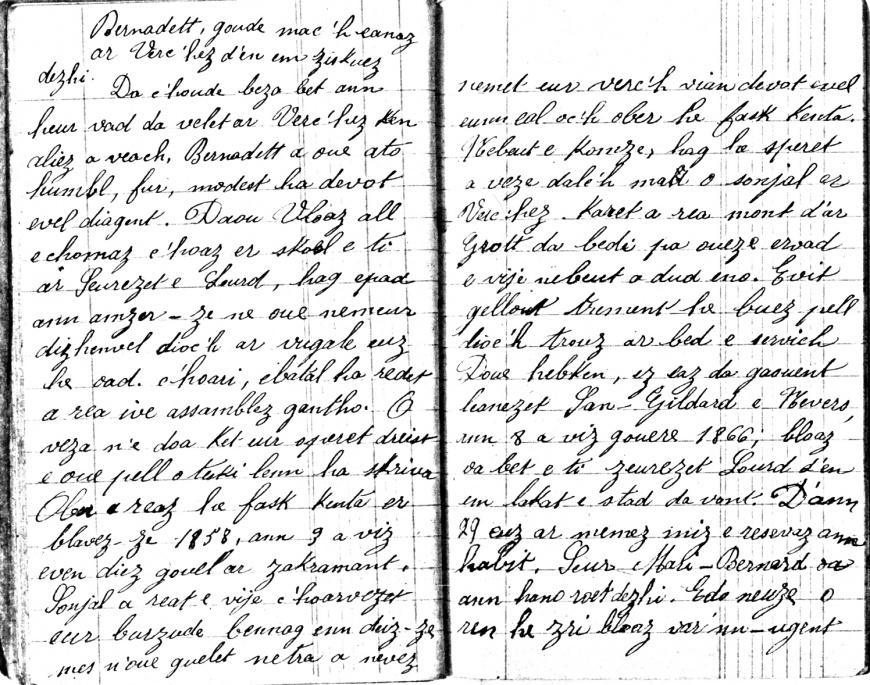 Bernadett, goude mac'h eanaz
ar Verc'hez d'en em ziskuez
dezhi.
Da c'houde beza bet ann
heur vad da velet ar Verc'hez ken
aliez a veach, Bernadett a oue ato
humbl, fur, modest ha devot
evel diagent. Daou Vloaz all
e chomaz c'hoaz er skol e ti
ar Seurezet e Lourd, hag epad
ann amzer-ze ne oue nemeur
dizhenvel dioc'h ar vugale euz
he oad. c'hoari, ebatal ha redet
a rea ive assamblez gantho. O
veza n'e doa ket eur speret dreist
e oue pell o teski lenn ha skriva
Ober a reaz he fask kenta er
blavez-ze 1858, ann 3 a viz
even diez gouel ar zakramant.
Sonjal a reat e vije c'hoarvezet
eur burzude bennag enn deiz-ze
mes n'oue guelet netra a nevez
nemet eur verc'h vian devot evel
eunn eal oc'h ober he fask kenta.
Nebeut e komze, hag he speret
a veze dalc'h mad o sonjal ar
Verc'hez. Karet a rea mont d'ar
Grott da bedi pa oueze ervad
e vije nebeut a dud eno. Evit
gellout tremen he buez pell
dioc'h trouz ar bed e servich
Doue hebken, ez eaz da gaouent
leanezet San-Gildard e Nevers,
unn 8 a viz gouere 1866; bloaz
oa bet e ti zeurezet Lourd d'en
em lakat e stad da vont. D'ann
29 euz ar memez miz e resevaz ann
habit. Seur Mari-Bernard oa
ann hano roet dezhi. Edo neuze o
ren he zri bloaz var'nn-ugent